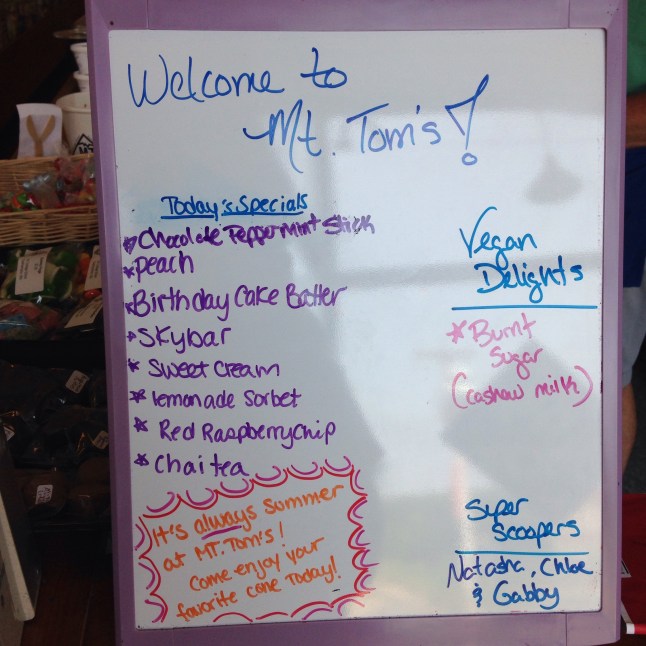 Welcome to
Mt. Tom's!
Today's Specials
* Chocolate Peppermint Stick
* Peach
* Birthday Cake Batter
* Skybar
* Sweet Cream
* lemonade Sorbet
* Red Raspberry chip
* Chai tea
It's always Summer
at MT. Tom's!
Come enjoy your
favorite cone Today!
Vegan
Delights
* Burnt
Sugar
(cashew milk)
Super
Scoopers
Natasha, Chloe
& Gabby